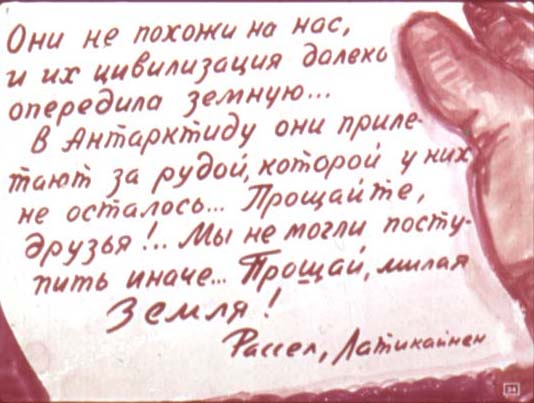 Они не похожи на нас,
и их цивилизация далеко
опередила земную...
В Антарктиду они приле-
тают за рудой, которой у них
не осталось... Прощайте,
друзья!.. Мы не могли посту-
пить иначе... Прощай, милая
Земля!
Рассел, Латикайнен
34